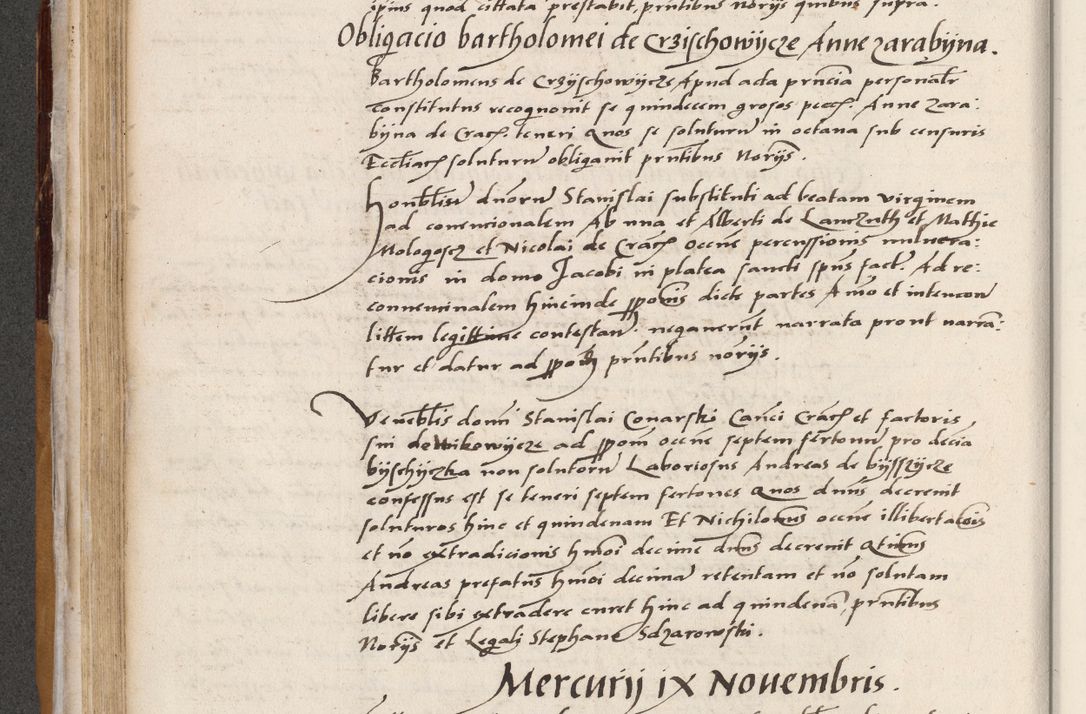 ipius quod cittata prestabit, pñtibus Norÿs quibus supra.
Obligacio bartholomei de Crzischowÿcze Anne zarabÿna.
Bartholomeus de Crzÿschowÿcze Apud acta pñcia personalr
Constitutus recognovit se quindecem grosos pecc. Anne Zara:
bÿna de Crac. teneri Quos se soluturum in octava sub censuris
Ecctiac soluturum obligavit pñtibus Norÿs.
Honblium dnorum Stanislai substituti ad beatam virginem
ad convencionalem Ab una et Alberti de Lanczuth et Mathie
Mologoscz et Nicolai de Crac occne percussionis vulnera:
cionis in domo Jacobi in platea sancti spus fact. Ad re:
convencinalem hincinde pponis dicte partes Animo et intencon
littem legittime contestan. negaverunt narrata prout narra:
tur et datur ad ppoñ pñtibus noriÿs.
Veneblis domi Stanislai Conarski Canci Crac et factoris
sui de Wikowÿcze ad ppom occne septem fertonum pro decia
bÿschÿczka non solutorum Laboriosus Andreas de bÿsszÿcze
confessus est se teneri septem fertones Quos dnus decrevit
soluturos hinc et quindenam Et Nichilomus occne illibertacois
et no extradicionis hmoi decime dnus decrevit Qtinus
Andreas prefatus hmoi decimam retentam et no solutam
libere sibi extradere curet hinc ad quindenã, pñtibus
Norÿs et Legali Stephano Sdzarowski.
Mercurÿ ix Novembris.